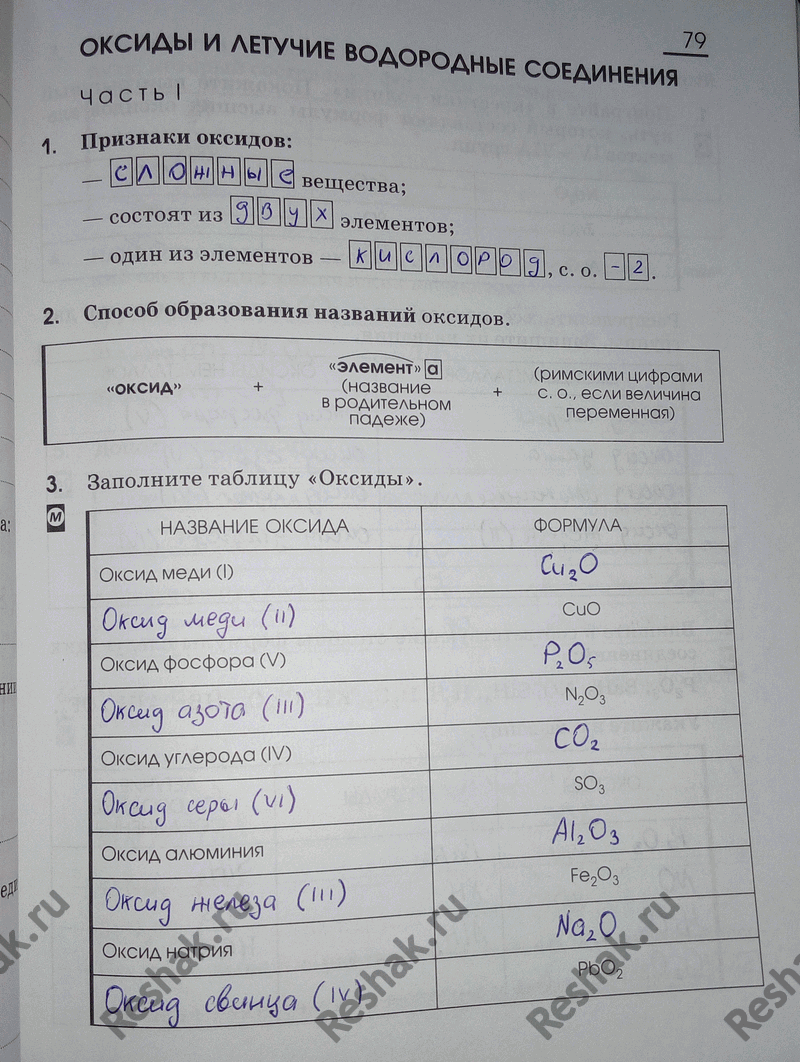 79
ОКСИДЫ И ЛЕТУЧИЕ ВОДОРОДНЫЕ СОЕДИНЕНИЯ
Часть I
1. Признаки оксидов:
— сложные вещества;
— состоят из двух элементов;
— один из элементов — кислород, с. о. -2.
2. Способ образования названий оксидов.
«ОКСИД» + «ЭЛЕМЕНТ» а (название в родительном падеже) + (римскими цифрами с. о., если величина переменная)
3. Заполните таблицу «Оксиды».
М
НАЗВАНИЕ ОКСИДА ФОРМУЛА
Оксид меди (I) Cu₂O
Оксид меди (II) CuO
Оксид фосфора (V) P₂O₅
Оксид азота (III) N₂O₃
Оксид углерода (IV) CO₂
Оксид серы (VI) SO₃
Оксид алюминия Al₂O₃
Оксид железа (III) Fe₂O₃
Оксид натрия Na₂O
Оксид свинца (IV) PbO₂
Reshak.ru
Reshak.ru
Reshak.ru
Reshak.ru